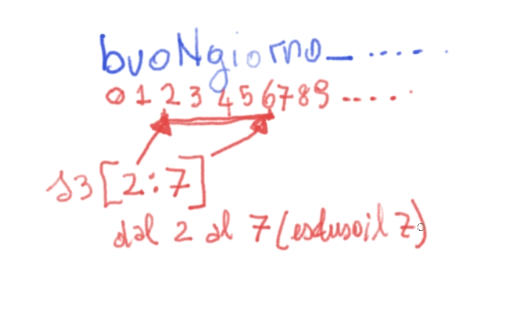 buoNgiorno_ .....
0 1 2 3 4 5 6 7 8 9 .....
s3[2:7]
dal 2 al 7 (escluso il 7)